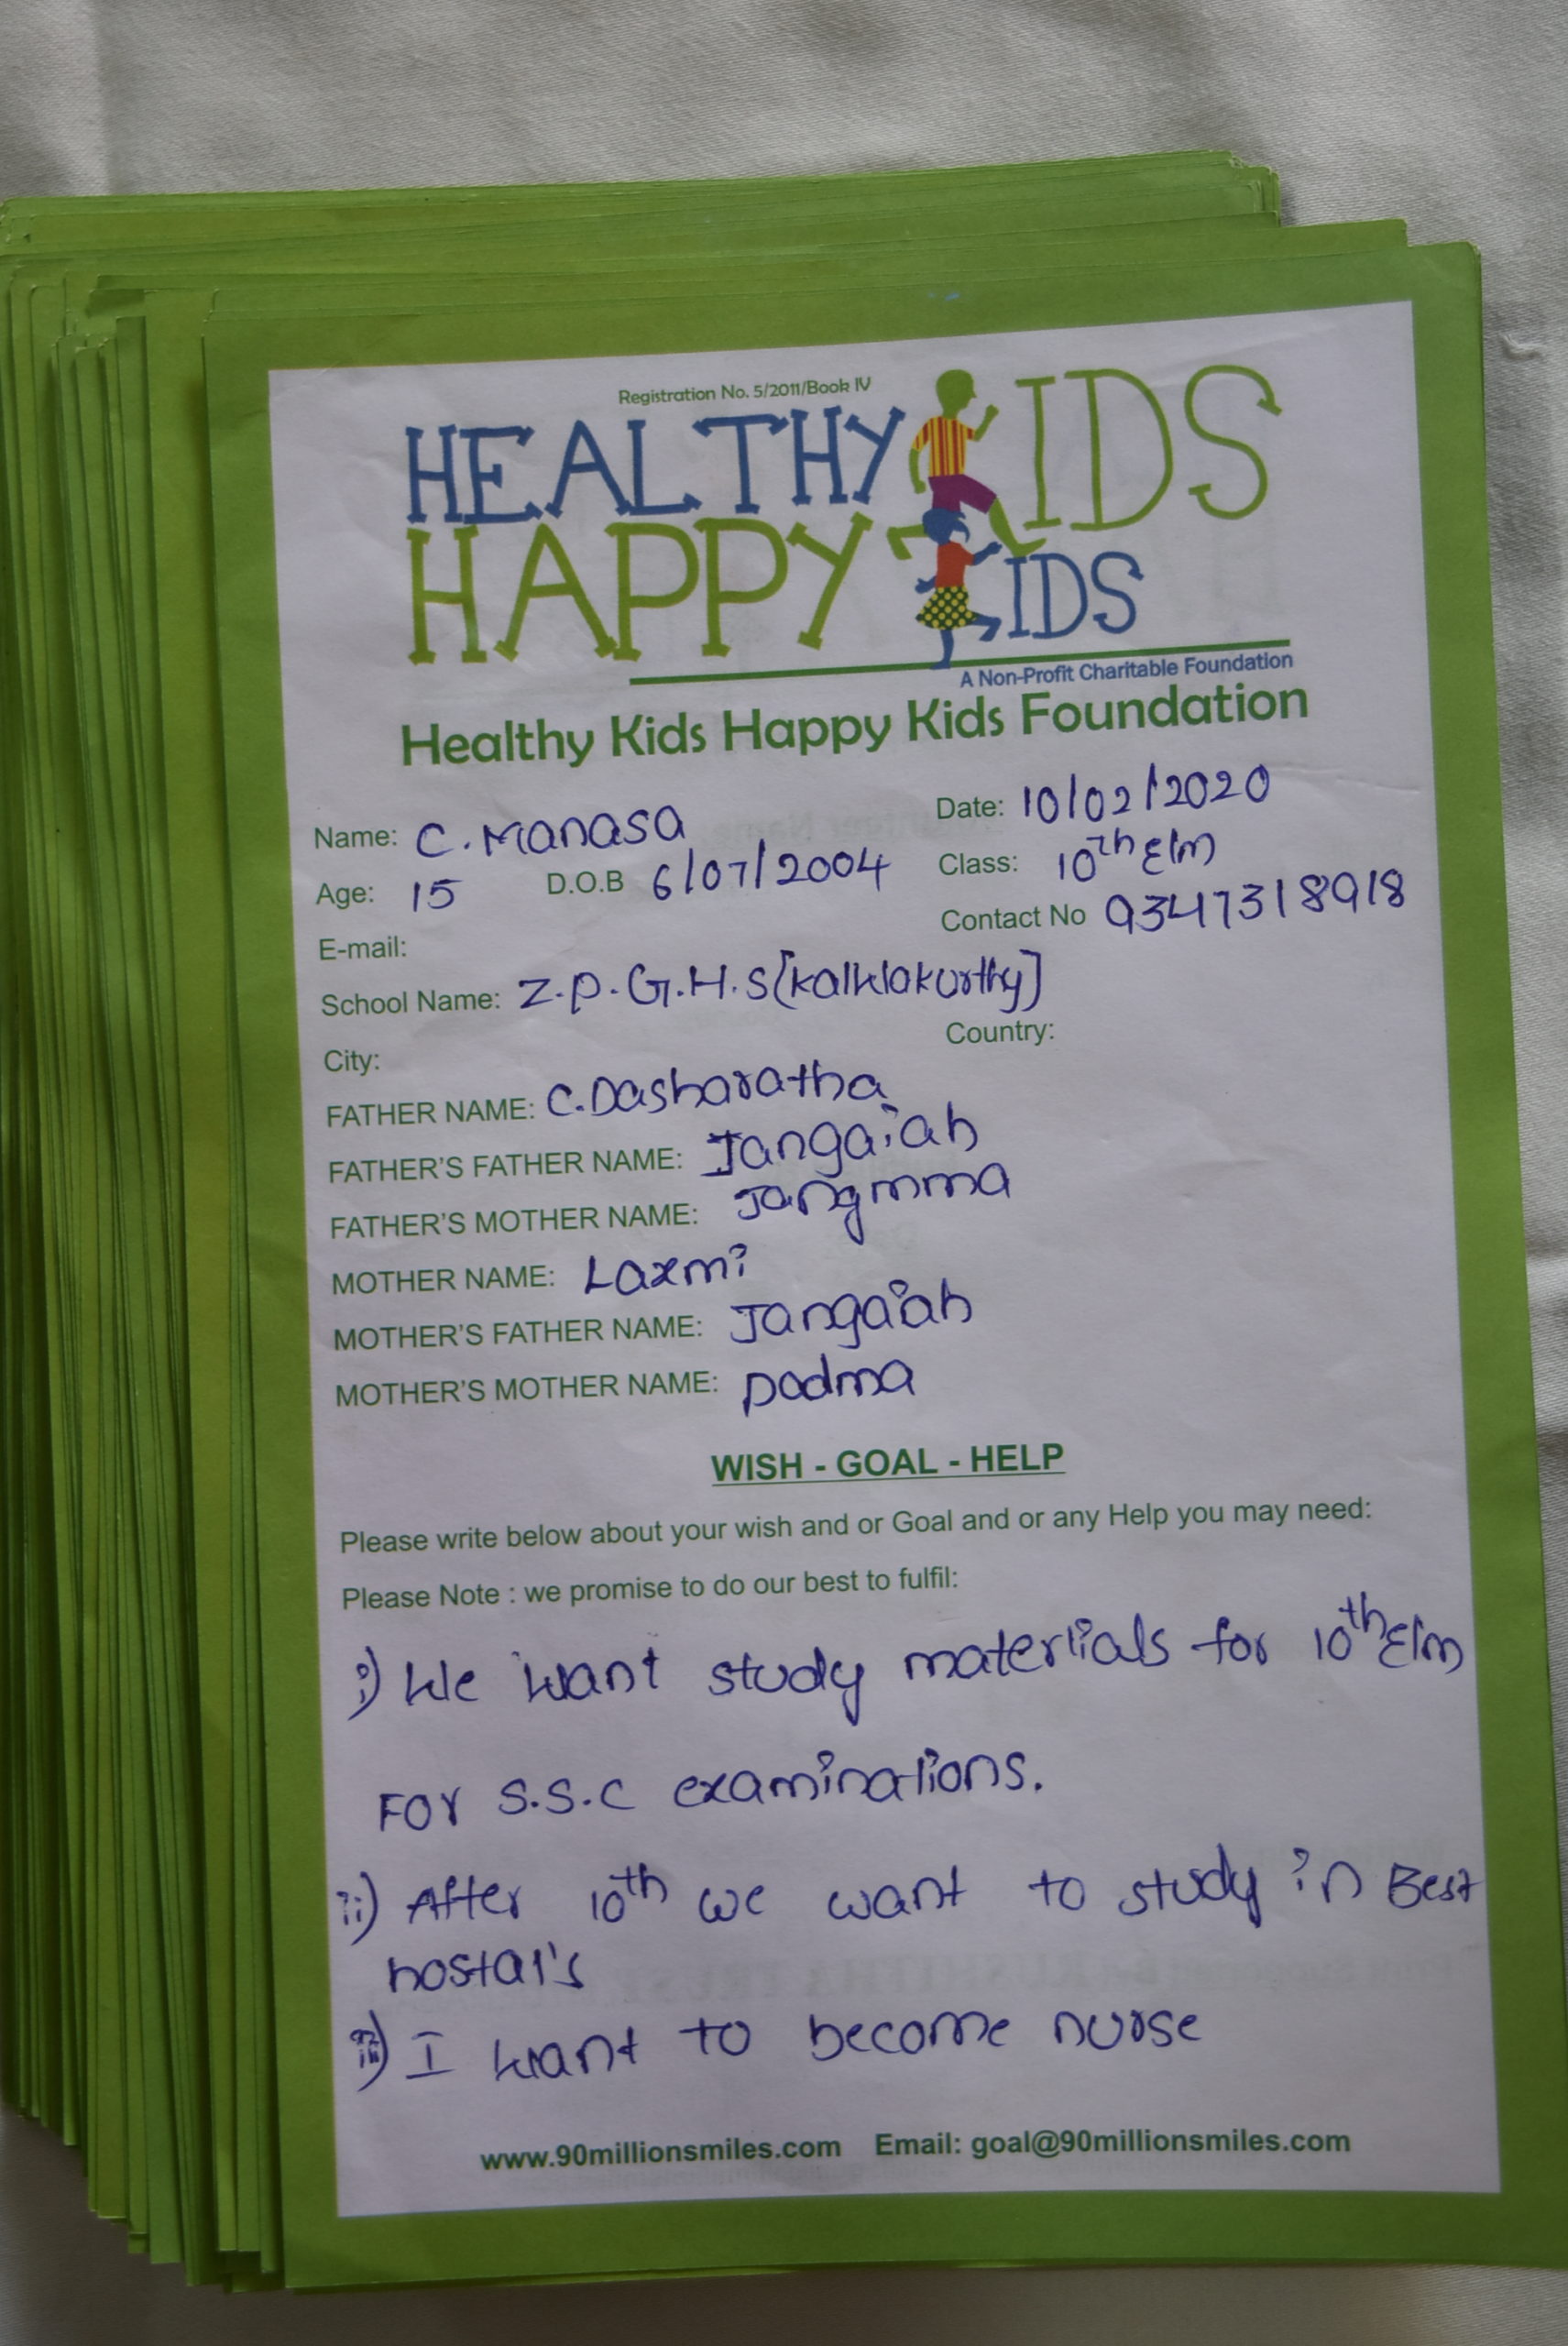 Registration No. 5/2011/Book IV
HEALTHY KIDS
HAPPY KIDS
A Non-Profit Charitable Foundation
Healthy Kids Happy Kids Foundation
Name: C. Manasa Date: 10/02/2020
Age: 15 D.O.B 6/07/2004 Class: 10th E/m
E-mail: Contact No 9347318918
School Name: Z.P.G.H.S [kalklakurthy]
City: Country:
FATHER NAME: C.Dasharatha
FATHER'S FATHER NAME: Jangaiah
FATHER'S MOTHER NAME: Jangmma
MOTHER NAME: Laxmi
MOTHER'S FATHER NAME: Jangaiah
MOTHER'S MOTHER NAME: padma
WISH - GOAL - HELP
Please write below about your wish and or Goal and or any Help you may need:
Please Note : we promise to do our best to fulfil:
i) We want study materiials for 10th E/m
FOR S.S.C examinations.
ii) After 10th we want to study in Best
hostal's
iii) I want to become nurse
www.90millionsmiles.com Email: goal@90millionsmiles.com